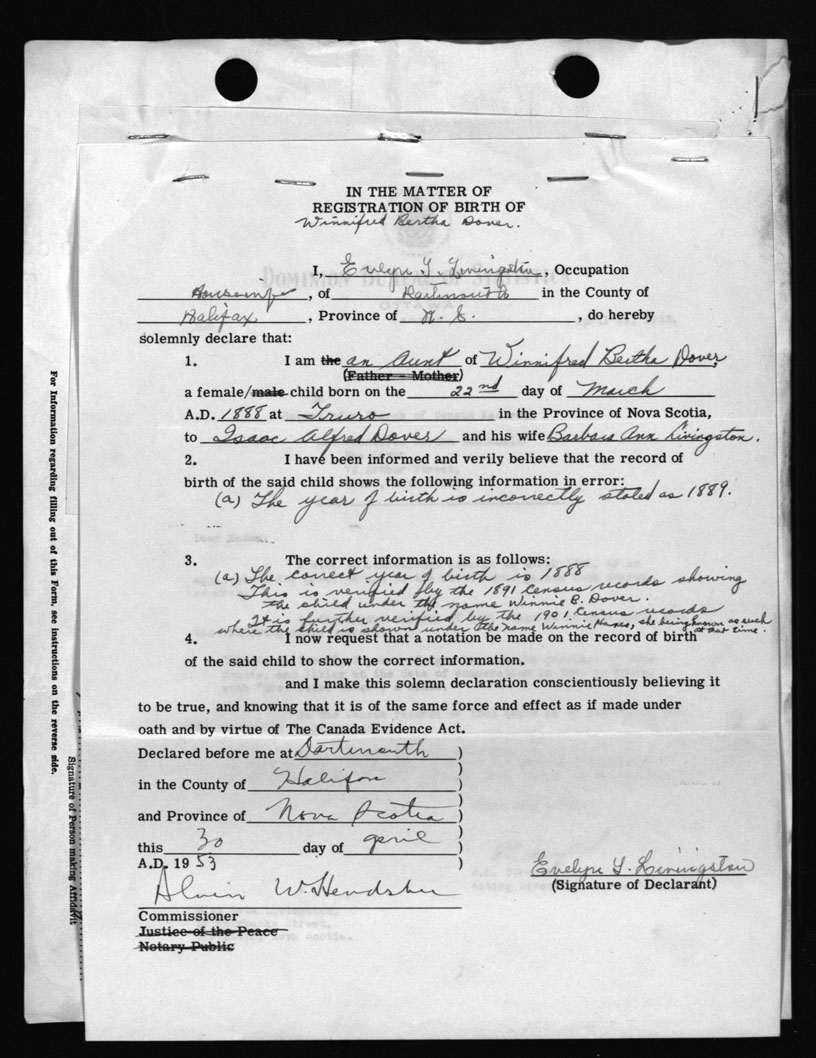 IN THE MATTER OF
REGISTRATION OF BIRTH OF
Winnifred Bertha Dover.
I, Evelyn Y. Livingston, Occupation
Housewife, of Dartmouth in the County of
Halifax, Province of N. S., do hereby
solemnly declare that:
1. I am the an Aunt of Winnifred Bertha Dover,
(Father - Mother)
a female/male child born on the 22nd day of March
A.D. 1888 at Truro in the Province of Nova Scotia,
to Isaac Alfred Dover and his wife Barbara Ann Livingston.
2. I have been informed and verily believe that the record of
birth of the said child shows the following information in error:
(a) The year of birth is incorrectly stated as 1889.
3. The correct information is as follows:
(a) The correct year of birth is 1888
This is verified by the 1891 Census records showing
the child under the name Winnie B. Dover.
It is further verified by the 1901 Census records
where the child is shown under the name Winnie, she being known as such
at that time.
4. I now request that a notation be made on the record of birth
of the said child to show the correct information.
and I make this solemn declaration conscientiously believing it
to be true, and knowing that it is of the same force and effect as if made under
oath and by virtue of The Canada Evidence Act.
Declared before me at Dartmouth )
in the County of Halifax )
and Province of Nova Scotia )
this 30 day of April )
A.D. 1953 )
Alvin W.
Evelyn Y. Livingston
(Signature of Declarant)
Commissioner
Justice of the Peace
Notary Public
For Information regarding filling out of this Form, see instructions on the reverse side.
Signature of Person making Affidavit
DOMINION BUREAU OF STATISTICS
OTTAWA